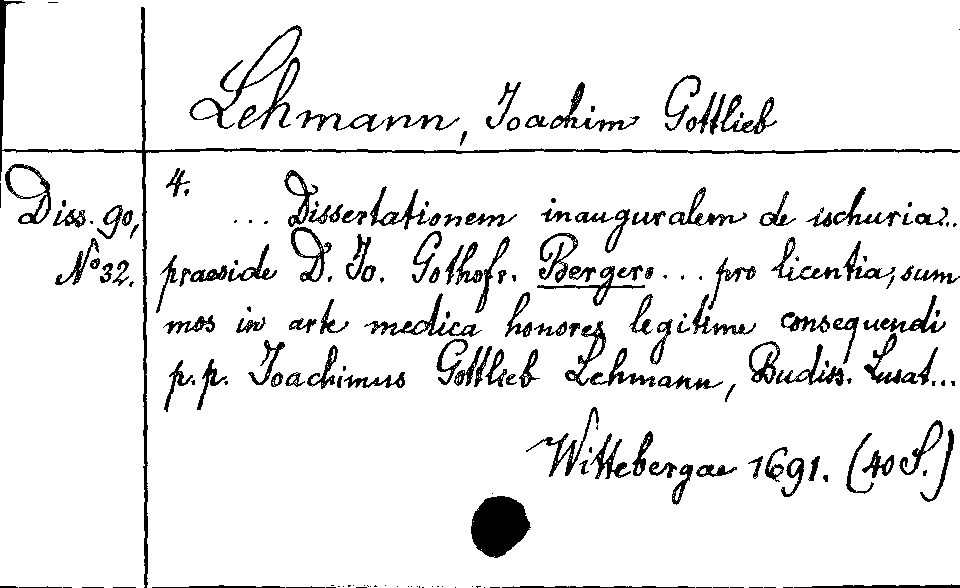 Lehmann, Joachim Gottlieb
Diss. 90,
No 32.
4.
... Dissertationem inauguralem de ischuria...
praeside D. Jo. Gothofr. Bergero ... pro licentia, sum
mos in arte medica honores legitime consequendi
p. p. Joachimus Gottlieb Lehmann, Budiss. Lusat...
Wittebergae 1691. (40 S.)